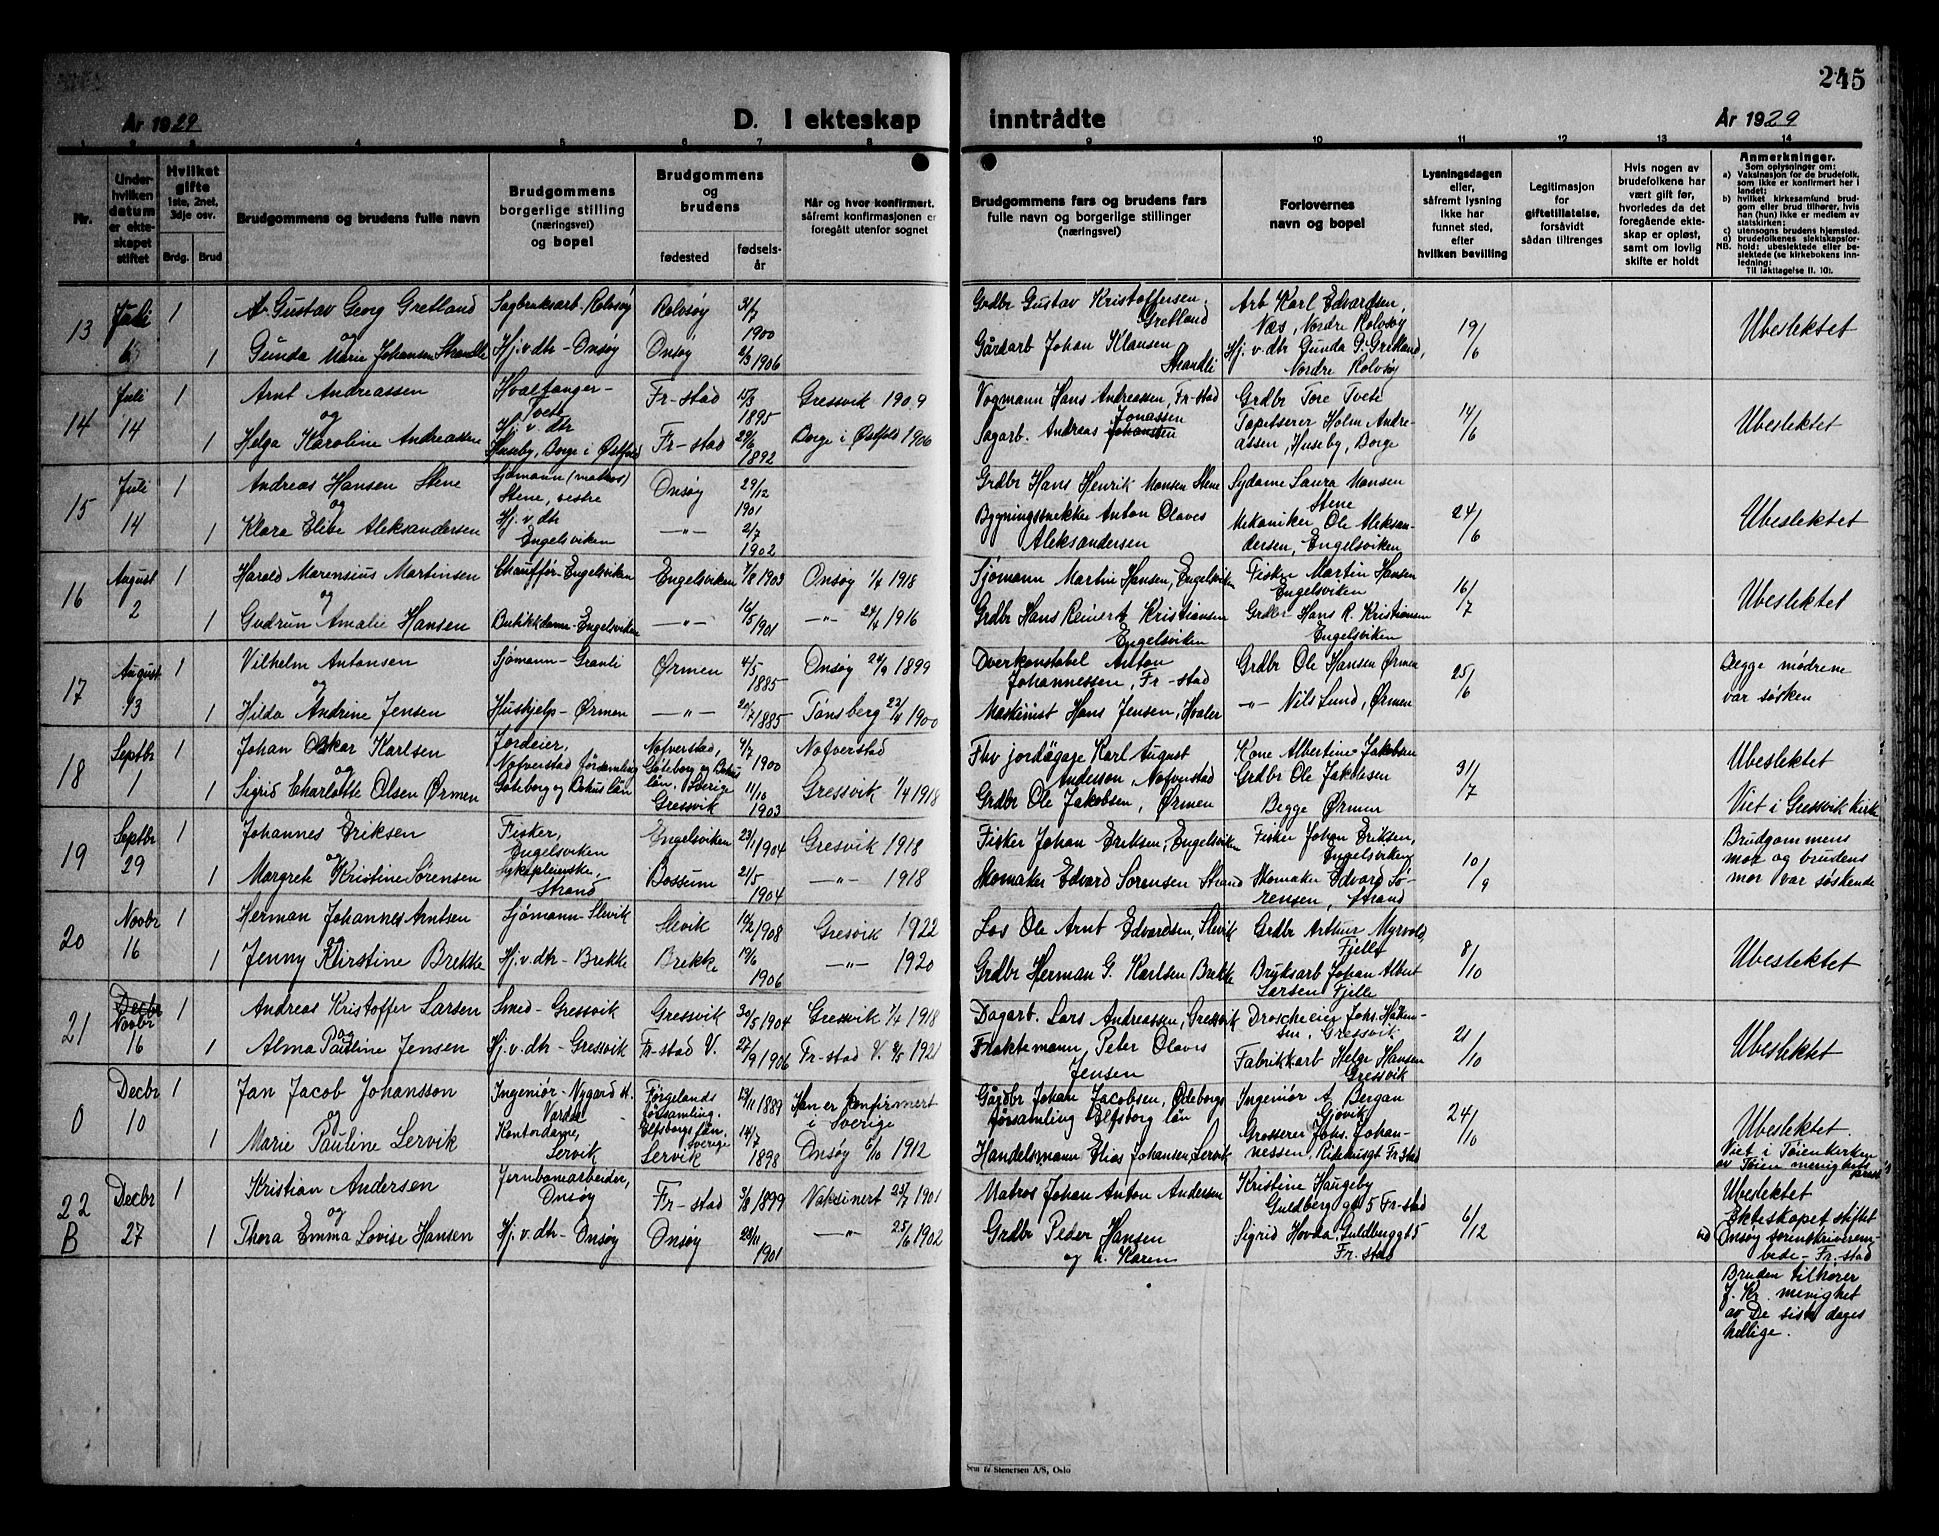 245
År 1929
D. I ekteskap
inntrådte
År 1929
1 2 3 4 5 6 7 8
9 10 11 12 13 14
Nr.
Under hvilken datum er ekteskapet stiftet
Hvilket gifte 1ste, 2net, 3dje osv.
Brdg. Brud
Brudgommens og brudens fulle navn
Brudgommens borgerlige stilling (næringsvei) og bopel
Brudgommens og brudens
fødested
fødselsår
Når og hvor konfirmert.
såfremt konfirmasjonen er foregått utenfor sognet
Brudgommens fars og brudens fars
fulle navn og borgerlige stillinger (næringsvei)
Forlovernes navn og bopel
Lysningsdagen eller, såfremt lysning ikke har funnet sted, efter hvilken bevilling
Legitimasjon for giftetillatelse, forsåvidt sådan tiltrenges
Hvis nogen av brudefolkene har vært gift før, hvorledes da det foregående ekteskap er opløst, samt om lovlig skifte er holdt
Anmerkninger.
Som oplysninger om:
a) Vaksinasjon for de brudefolk, som ikke er konfirmert her i landet;
b) hvilket kirkesamfund brudgom eller brud tilhører, hvis han (hun) ikke er medlem av statskirken;
c) utensogns brudens hjemsted.
d) brudefolkenes slektskapsforhold: ubeslektede eller beslektede (se kirkebokens innledning;
NB.
Til iakttagelse II. 10).
13 Juli 6 1 Gustav Georg Gretland Sagbruksarb. Rolvsøy Rolvsøy 31/7 1900
og
1 Gunda Marie Johansen Strandli Hj.v.dtr - Onsøy Onsøy 2/3 1906
Grdbr Gustav Kristoffersen Gretland Arb Karl Edvardsen, Næs, Nordre Rolvsøy 19/6 Ubeslektet
Gårdarb Johan Klausen Strandli Hj.v.dtr Gunda G. Gretland, Nordre Rolvsøy
14 Juli 14 1 Arnt Andreassen Hvalfanger - Tvete Fr-stad 15/3 1895 Gressvik 1909
og
1 Helga Karoline Andreassen Hj.v.dtr Huseby, Borge i Østfold Fr-stad 29/6 1892 Borge i Østfold 1906
Vogmann Hans Andreassen, Fr-stad Grdbr Tore Tvete 14/6 Ubeslektet
Sagarb. Andreas Johansen Jonassen Tapetserer Holm Andreassen, Huseby, Borge
15 Juli 14 1 Andreas Hansen Stene Sjömann (matros) Stene, vestre Onsøy 29/12 1901
og
1 Klara Elise Aleksandersen Hj.v.dtr Engelsviken -"- 2/7 1902
Grdbr Hans Henrik Monsen Stene Sydame Laura Monsen Stene 24/6 Ubeslektet
Bygningssnekker Anton Olaves Aleksandersen Mekaniker Ole Aleksandersen, Engelsviken
16 August 2 1 Harald Marensius Martinsen Chauffør - Engelsviken Engelsviken 7/8 1903 Onsøy 1918
og
1 Gudrun Amalie Hansen Butikkdame - Engelsviken -"- 16/5 1901 -"- 24/4 1916
Sjømann Martin Hansen, Engelsviken Fisker Martin Hansen Engelsviken 16/7 Ubeslektet
Grdbr Hans Reinert Kristiansen Engelsviken Grdbr Hans R. Kristiansen Engelsviken
17 August 13 1 Vilhelm Antonsen Sjømann - Granli Ørmen 4/5 1885 Onsøy 24/9 1899
og
1 Hilda Andrine Jensen Huskjelp - Ørmen -"- 20/7 1885 Tønsberg 22/4 1900
Overkonstabel Anton Johannessen, Fr-stad Grdbr Ole Hansen Ørmen 25/6 Begge mødrene var søsken
Maskinist Hans Jensen, Hvaler -"- Nils Lund, Ørmen
18 Septbr 1 1 Johan Oskar Karlsen Jordeier, Nofverstad församling Göteborg og Bohus län Nofverstad, Göteborg og Bohus län, Sverige 4/7 1900 Nofverstad
og
1 Sigrid Charlotte Olsen Ørmen Gressvik 11/10 1903 Gressvik 1/4 1918
Fhv jordägare Karl August Anderson Nofverstad Kone Albertine Jakobsen 31/7 Ubeslektet
Grdbr Ole Jakobsen, Ørmen Grdbr Ole Jakobsen Begge Ørmen Viet i Gressvik kirke
19 Septbr 29 1 Johannes Eriksen Fisker, Engelsviken Engelsviken 23/1 1904 Gresvik 1918
og
1 Margrete Kristine Sørensen Sykepleierske, Strand Bossum 21/5 1904 -"- 1918
Fisker Johan Eriksen, Engelsviken Fisker Johan Eriksen, Engelsviken 10/9 Brudgommens mor og brudens mor var søskende
Skomaker Edvard Sorensen Strand Skomaker Edvard Sörensen, Strand
20 Novbr 16 1 Herman Johannes Arntsen Sjømann - Slevik Slevik 14/2 1908 Gresvik 1922
og
1 Jenny Kirstine Brekke Hj.v.dtr - Brekke Brekke 19/6 1906 -"- 1920
Los Ole Arnt Edvardsen, Slevik Grdbr Arthur Myrvold, Fjelle 8/10 Ubeslektet
Grdbr Herman G. Karlsen Brekke Brydsarb Johan Albert Larsen Fjelle
21 Decbr Novbr 16 1 Andreas Kristoffer Larsen Smed - Gressvik Gressvik 30/5 1904 Gressvik 7/4 1918
og
1 Alma Pauline Jensen Hj.v.dtr - Gressvik Fr-stad V. 27/9 1906 Fr-stad V. 1921
Dagarb. Lars Andreassen, Gressvik Droscheeier Johs. Håkensen, Gressvik 21/10 Ubeslektet
Fraktemann, Peter Olaves Jensen Fabrikkarb Helge Hansen Gressvik
0 Decbr 10 1 Jan Jacob Johansson Ingeniør - Nygard st. Vardal Førgelands församling, Elfsborgs län, Sverige 23/11 1889 Han er konfirmert i Sverige
og
1 Marie Pauline Lervik Kontordame, Lervik Lervik 14/7 1898 Onsøy 6/10 1912
Johan Jacobsen, församling Elfsborg län Ingeniør A Bergan Gjøvik 24/10 Ubeslektet
Handelsmann Elias Johansen, Lervik Grosserer Johs. Johannessen, Ridehusgt Fr.stad Viet i Tøienkirken av Tøien menighets
22 B Decbr 27 1 Kristian Andersen Jernbanearbeider, Onsøy Fr-stad 3/8 1899 Vaksinert 1901
og
1 Thora Emma Lovise Hansen Hj.v.dtr - Onsøy Onsøy 23/11 1901 -"- 25/6 1902
Matros Johan Anton Andersen Kristine Haugeby Guldberg gt 5 Fr-stad 6/12 Ubeslektet
Grdbr Peder Hansen og h. Karen Sigrid Hovda, Guldberggt 5 Fr.stad
Ekteskapet stiftet
Onsøy sorenskriverembede - Fr.stad
Bruden tilhører
J. Kr. menighet
av De siste dages
hellige.
Sem & Stenersen A/S, Oslo